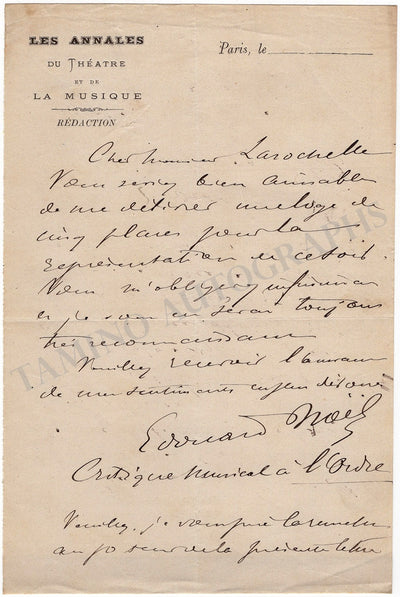 LES ANNALES
DU THÉATRE
ET DE
LA MUSIQUE
RÉDACTION
Paris, le
Cher Monsieur Larochelle
Vous seriez bien aimable
de me délivrer une loge de
cinq places pour la
représentation de ce soir.
Vous m'obligerez infiniment
et je vous en serai toujours
très reconnaissant
Veuillez recevoir l'assurance
de mes sentiments les plus distingués
Edouard Noël
Critique Musical à l'Ordre
Veuillez, je vous prie la remettre
au porteur de la présente lettre
TAMINO AUTOGRAPHS